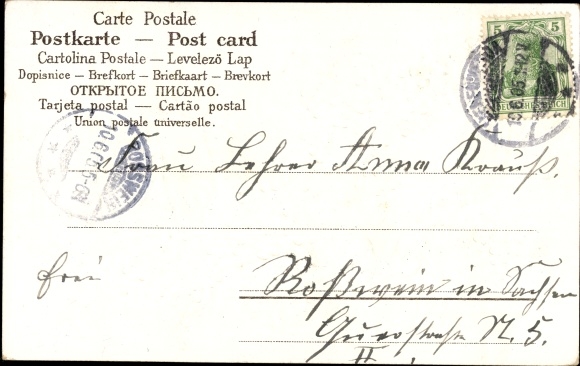 Carte Postale
Postkarte — Post card
Cartolina Postale — Levelező Lap
Dopisnice — Brefkort — Briefkaart — Brevkort
ОТКРЫТОЕ ПИСЬМО.
Tarjeta postal — Cartão postal
Union postale universelle.
5 5
DEUTSCHES REICH
ROSSWEIN
10.6.05. 5-6N
Frau Lehrer Anna Krauß.
frei
Roßwein in Sachsen
N. 5.
II.